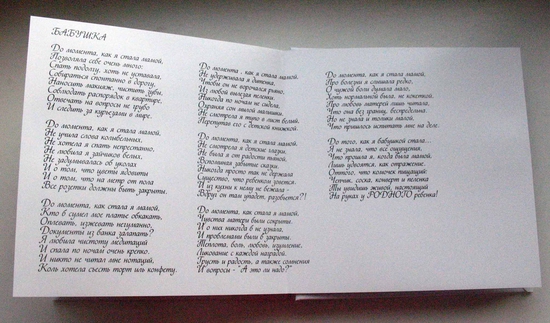 БАБУШКА
До момента, как я стала мамой,
Позволяла себе очень много:
Спать подолгу, хоть не уставала,
Собираться спонтанно в дорогу,
Наносить макияж, чистить зубы,
Соблюдать распорядок в квартире,
Отвечать на вопросы не грубо
И следить за курьезами в мире.
До момента, как я стала мамой,
Не учила слова колыбельных,
Не хотела я спать непрестанно,
Не любила я зайчиков белых,
Не задумывалась об уколах
И о том, что цветы ядовиты
И о том, что на метр от пола
Все розетки должны быть закрыты.
До момента, как я стала мамой,
Кто б сумел мое платье обкакать,
Оплевать, изжевать неустанно,
Документы из банка залапать?
Я любила чистоту медитаций
И спала по ночам очень крепко.
И никто не читал мне нотаций,
Коль хотела съесть торт иль конфету.
До момента, как я стала мамой,
Не удерживала я дитенка,
Чтобы он не ворочался рьяно,
Из любой вылезая пеленки.
Никогда по ночам не сидела,
Охраняя сон милой малышки,
Не смотрела я тупо в лист белый,
Перепутав его с детской книжкой.
До момента, как я стала мамой,
Не смотрела я в детские глазки,
Не была я от радости пьяной,
Вспоминая забытые сказки.
Никогда просто так не держала
Существо, что ребенком зовется.
И из кухни к нему не бежала -
Вдруг он там упадет, разобьется?!
До момента, как я стала мамой,
Чувства матери были сокрыты.
И о них никогда я не знала,
И проблемами были закрыты.
Теплота, боль, любовь, изумленье,
Ликование с каждой наградой.
Грусть и радость, а также сомнения
И вопросы - "А это ли надо?"
До момента, как я стала мамой,
Про болезни я слышала редко,
О чужой боли думала мало,
Хоть нормальной была, не кокеткой.
Про любовь матерей лишь читала,
Что она без границ, беспредельна.
Но не знала и толики малой,
Что пришлось испытать мне на деле.
До того, как я бабушкой стала...
Я не знала, что все ощущения,
Что прошла я, когда была мамой,
Лишь удвоятся, как отражение.
Оттого, что комочек пищащий:
Чепчик, соска, конверт и пеленка
Ты увидишь живой, настоящий
На руках у РОДНОГО ребенка!